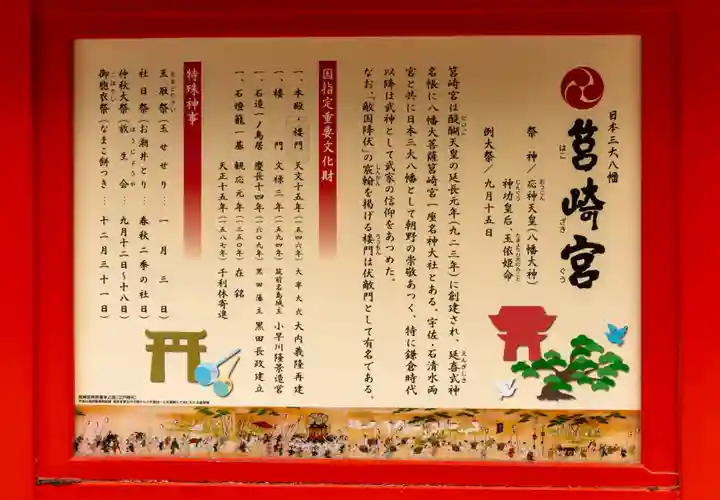 日本三大八幡
筥崎宮
はこ ざき ぐう
祭 神/応神天皇(八幡大神)
神功皇后、玉依姫命
例大祭/九月十五日
筥崎宮は醍醐天皇の延長元年(九二三年)に創建され、延喜式神
名帳に八幡大菩薩筥崎宮一座名神大社とある。宇佐、石清水両
宮と共に日本三大八幡として朝野の崇敬あつく、特に鎌倉時代
以降は武神として武家の信仰をあつめた。
なお、「敵国降伏」の宸翰を掲げる楼門は伏敵門として有名である。
国指定重要文化財
一、本殿・楼門 天文十五年(一五四六) 大宰大弐 大内義隆再建
一、楼 門 文禄三年(一五九四) 筑前名島城主 小早川隆景造営
一、石造一ノ鳥居 慶長十四年(一六〇九) 黒田藩主 黒田長政建立
一、石燈籠一基 観応元年(一三五〇) 在銘
天正十五年(一五八七) 千利休寄進
特殊神事
玉取祭(玉せせり)… 一月三日
社日祭(お潮井とり)… 春秋二季の社日
仲秋大祭(放生会)… 九月十二日〜十八日
御胞衣祭(なまこ餅つき)… 十二月三十一日